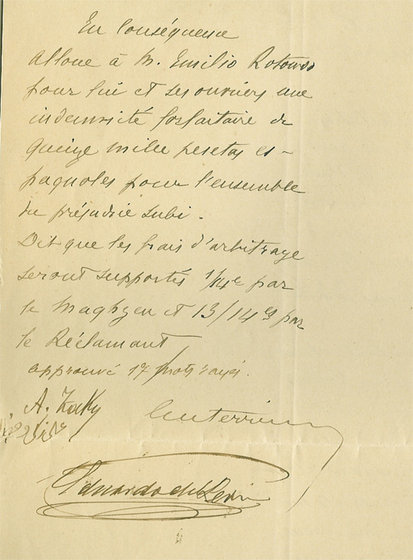 En Conséquence
alloue à M. Emilio Rotondo
pour lui et ses ouvriers une
indemnité forfaitaire de
quinze mille pesetas es-
pagnoles pour l'ensemble
du préjudice subi.
Dit que les frais d'arbitrage
seront supportés 1/14e par
le Maghzen et 13/14es par
le Réclamant
approuvé 17 mots rayés.
A.